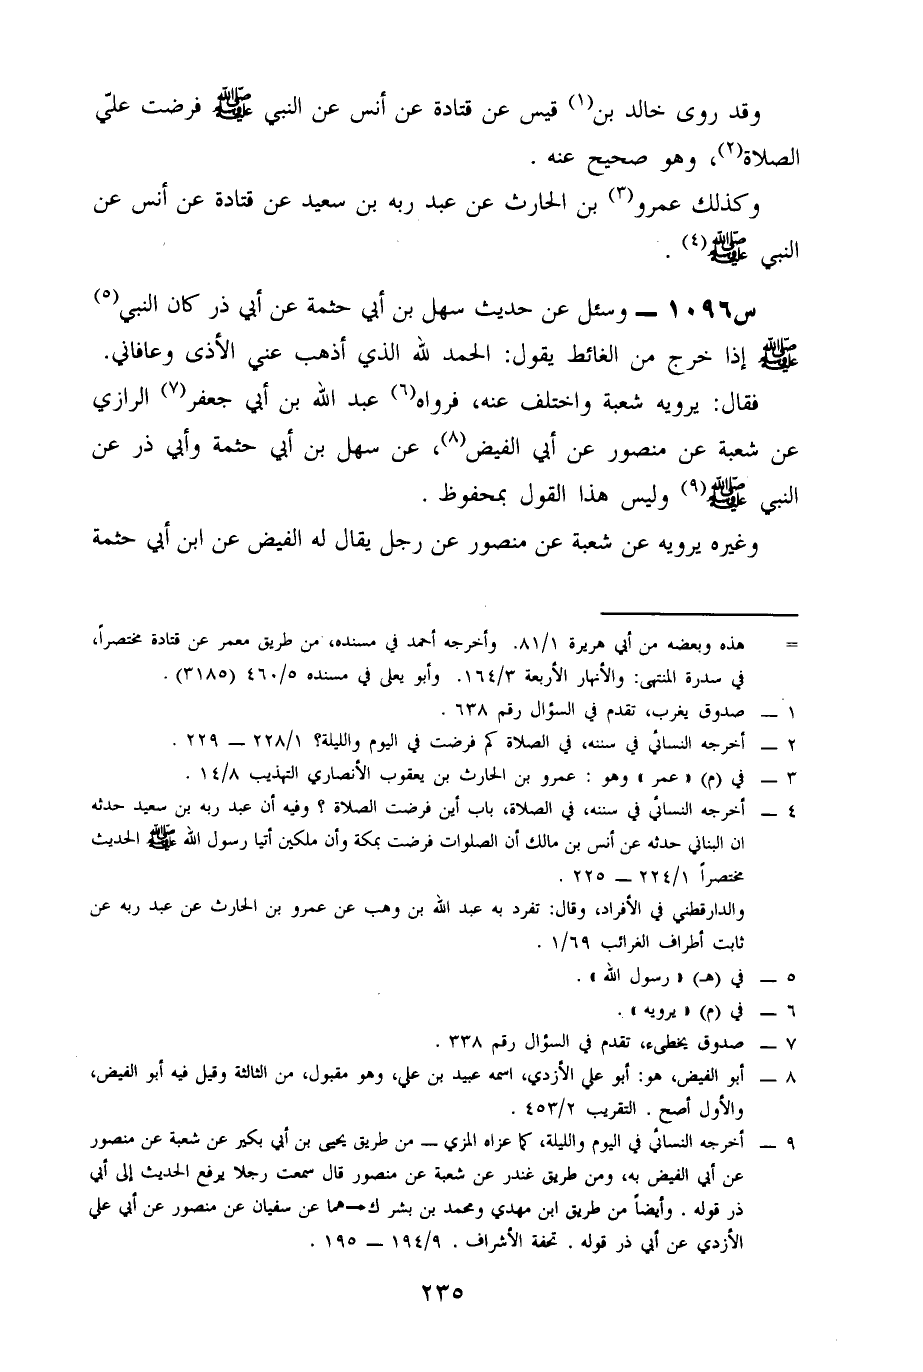 وقد روى خالد بن(١) قيس عن قتادة عن أنس عن النبي ﷺ فرضت عليّ
الصلاة(٢)، وهو صحيح عنه .
وكذلك عمرو(٣) بن الحارث عن عبد ربه بن سعيد عن قتادة عن أنس عن
النبي ﷺ(٤) .
س١٠٩٦ ـ وسئل عن حديث سهل بن أبي حثمة عن أبي ذر كان النبي(٥)
ﷺ إذا خرج من الغائط يقول: الحمد لله الذي أذهب عني الأذى وعافاني.
فقال: يرويه شعبة واختلف عنه، فرواه(٦) عبد الله بن أبي جعفر(٧) الرازي
عن شعبة عن منصور عن أبي الفيض(٨)، عن سهل بن أبي حثمة وأبي ذر عن
النبي ﷺ(٩) وليس هذا القول بمحفوظ .
وغيره يرويه عن شعبة عن منصور عن رجل يقال له الفيض عن ابن أبي حثمة
= هذه وبعضه من أبي هريرة ٨١/١. وأخرجه أحمد في مسنده، من طريق معمر عن قتادة مختصراً،
في سدرة المنتهى: والأنهار الأربعة ١٦٤/٣. وأبو يعلى في مسنده ٤٦٠/٥ (٣١٨٥) .
١ ـ صدوق يغرب، تقدم في السؤال رقم ٦٣٨ .
٢ ـ أخرجه النسائي في سننه، في الصلاة كم فرضت في اليوم والليلة؟ ٢٢٨/١ ـ ٢٢٩ .
٣ ـ في (م) « عمر » وهو : عمرو بن الحارث بن يعقوب الأنصاري التهذيب ١٤/٨ .
٤ ـ أخرجه النسائي في سننه، في الصلاة، باب أين فرضت الصلاة ؟ وفيه أن عبد ربه بن سعيد حدثه
ان البناني حدثه عن أنس بن مالك أن الصلوات فرضت بمكة وأن ملكين أتيا رسول الله ﷺ الحديث
مختصراً ٢٢٤/١ ـ ٢٢٥ .
والدارقطني في الأفراد، وقال: تفرد به عبد الله بن وهب عن عمرو بن الحارث عن عبد ربه عن
ثابت أطراف الغرائب ١/٦٩ .
٥ ـ في (هـ) « رسول الله » .
٦ ـ في (م) « يرويه » .
٧ ـ صدوق يخطىء، تقدم في السؤال رقم ٣٣٨ .
٨ ـ أبو الفيض، هو: أبو علي الأزدي، اسمه عبيد بن علي، وهو مقبول، من الثالثة وقيل فيه أبو الفيض،
والأول أصح . التقريب ٤٥٣/٢ .
٩ ـ أخرجه النسائي في اليوم والليلة، كما عزاه المزي ـ من طريق يحيى بن أبي بكير عن شعبة عن منصور
عن أبي الفيض به، ومن طريق غندر عن شعبة عن منصور قال سمعت رجلا يرفع الحديث إلى أبي
ذر قوله . وأيضاً من طريق ابن مهدي ومحمد بن بشر كـهما عن سفيان عن منصور عن أبي علي
الأزدي عن أبي ذر قوله . تحفة الأشراف . ١٩٤/٩ ـ ١٩٥ .
٢٣٥